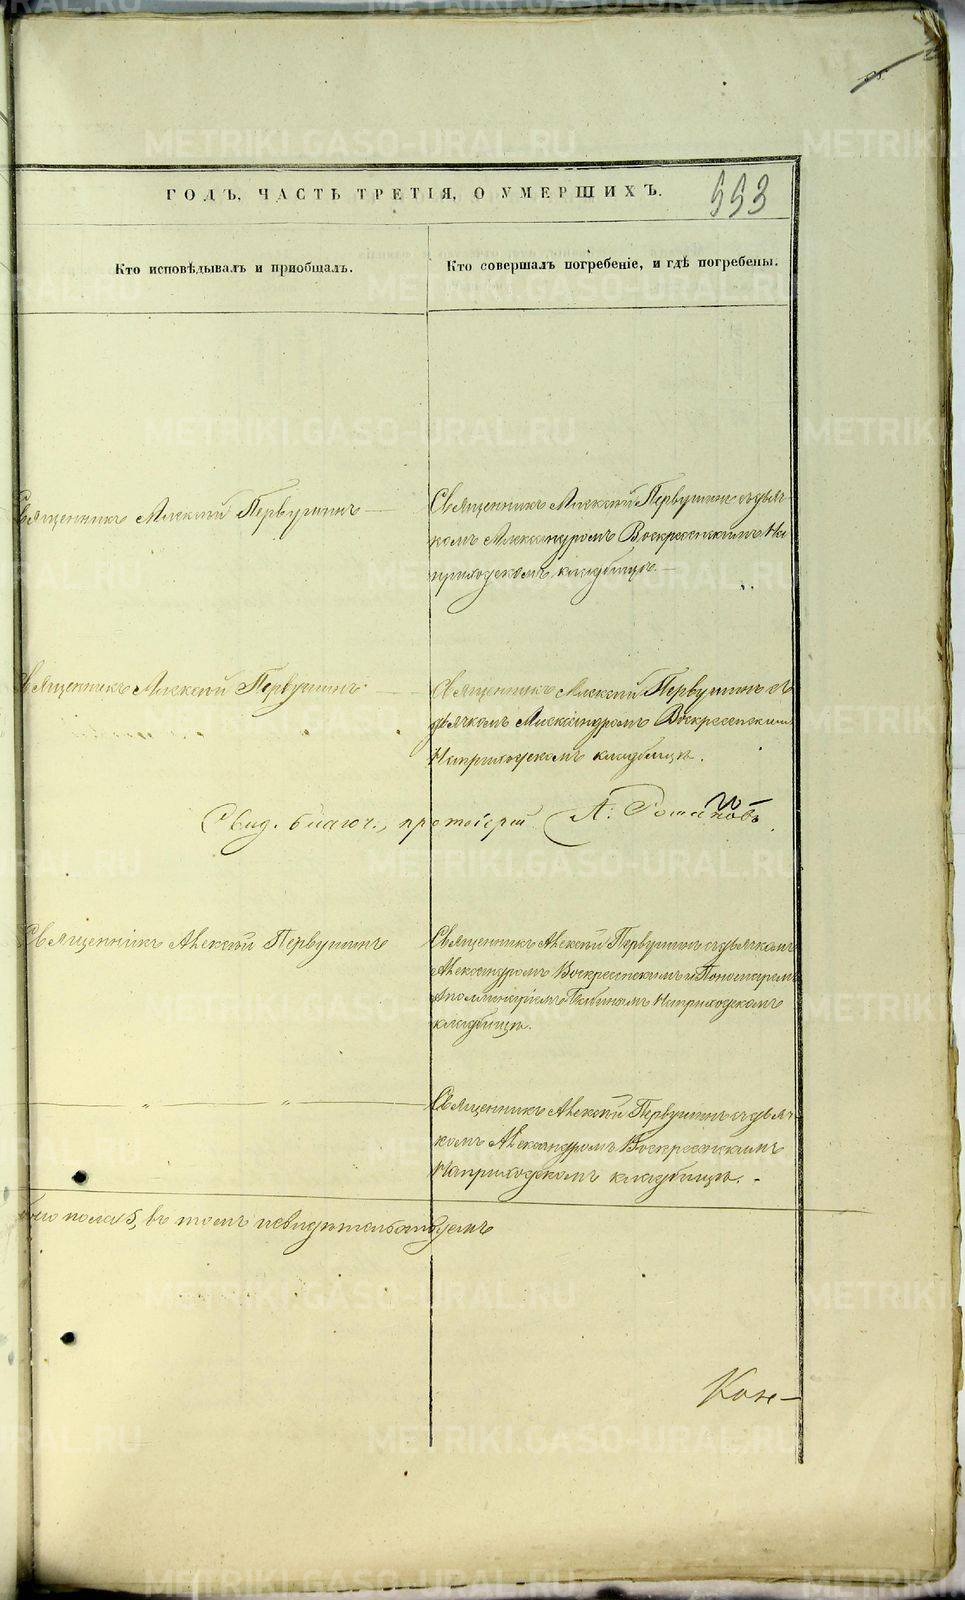 ГОДЪ, ЧАСТЬ ТРЕТІЯ, О УМЕРШИХЪ.
553
Кто исповѣдывалъ и пріобщалъ.
Кто совершалъ погребеніе, и гдѣ погребены.
Священникъ Алексій Первушинъ
Священникъ Алексій Первушинъ съ дьяч-
комъ Александромъ Воскресенскимъ На
приходскомъ кладбищѣ.
Священникъ Алексій Первушинъ
Священникъ Алексій Первушинъ съ
дьячкомъ Александромъ Воскресенскимъ
На приходскомъ кладбищѣ.
Свид. благоч., протоіерей А. Романовъ
Священникъ Алексій Первушинъ
Священникъ Алексій Первушинъ съ дьячкомъ
Александромъ Воскресенскимъ и Пономаремъ
Аполлинаріемъ На приходскомъ
кладбищѣ.
" "
Священникъ Алексій Первушинъ съ дьяч-
комъ Александромъ Воскресенскимъ
На приходскомъ кладбищѣ.
пола 5, въ томъ и свидѣтельствуемъ
METRIKI.GASO-URAL.RU